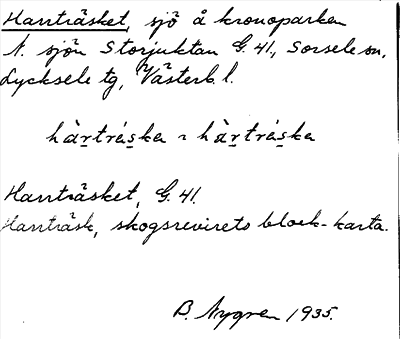 Harrträsket, sjö å kronoparken
N. sjön Storjuktan G. 41., Sorsele sn,
Lycksele tg, Västerb. l.
hàrtráska ~ hàrtráska
Harrträsket, G. 41.
Harrträsk, skogsrevirets block-karta.
B. Nygren 1935.